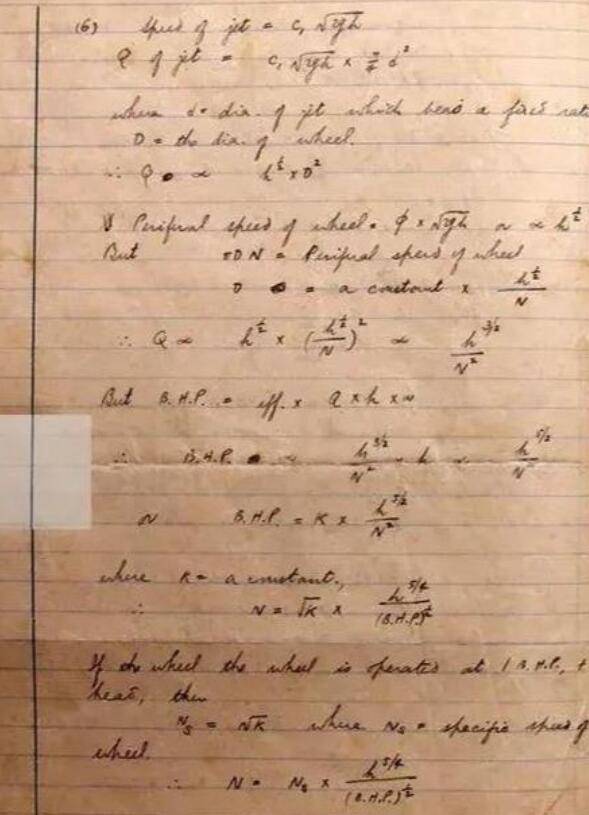 (6) Speed of jet = C, √2gh
Q of jet = C, √2gh × π/4 d²
where d = dia. of jet which bears a fixed
D = the dia. of wheel.
∴ Q ∝ h^½ × D²
Periferal speed of wheel = φ × √2gh or ∝ h^½
But πDN = Periferal speed of wheel
D = a constant × h^½/N
∴ Q ∝ h^½ × (h^½/N)² ∝ h^3/2/N²
But B.H.P. = eff. × Q × h × w
∴ B.H.P. ∝ h^3/2/N² × h ∝ h^5/2/N²
or B.H.P. = K × h^5/2/N²
where K = a constant.,
∴ N = √K × h^5/4/(B.H.P.)^½
If the wheel the wheel is operated at 1 B.H.P.,
head, then
Ns = √K where Ns = specific speed of
wheel.
∴ N = Ns × h^5/4/(B.H.P.)^½